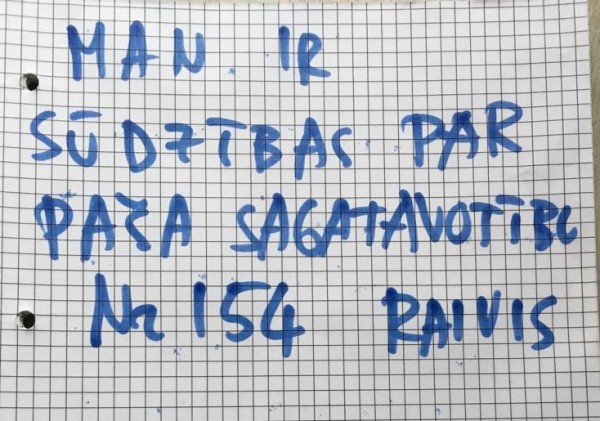 MAN IR
SŪDZĪBAS PAR
PAŠA SAGATAVOTĪBU
Nr 154 RAIVIS